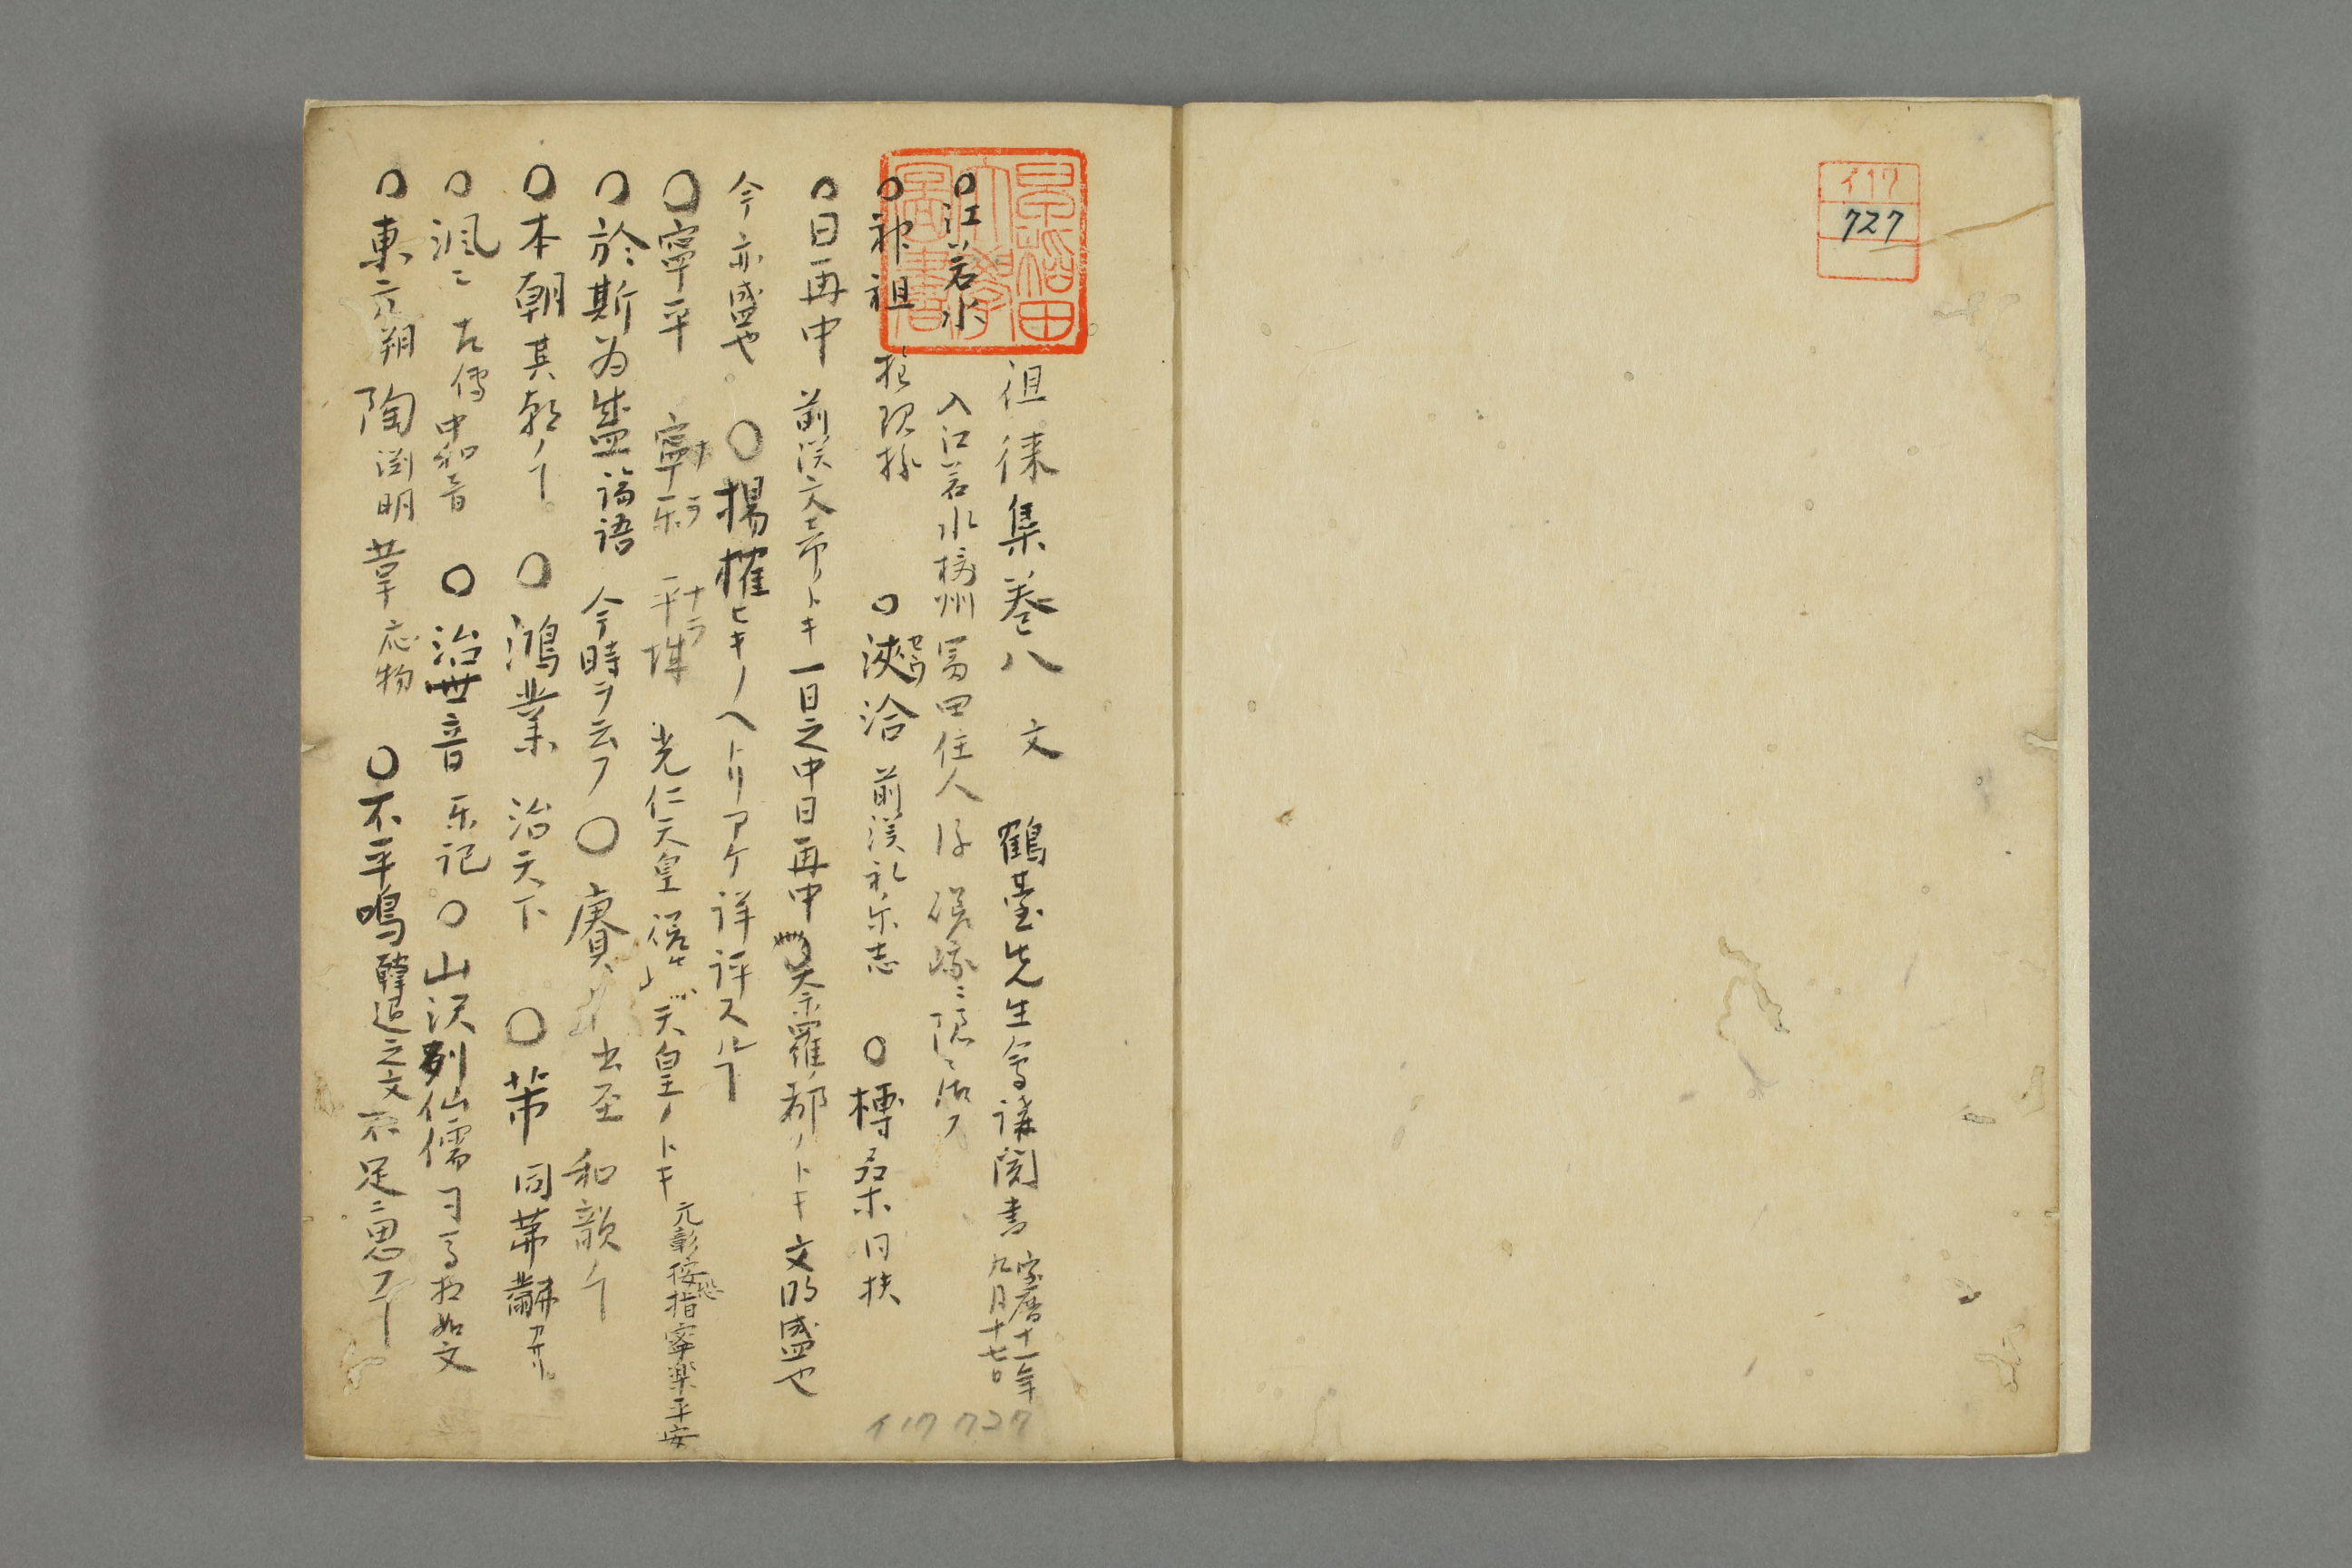 イ17
727
徂徠集巻八 文 鶴臺先生 講聞書 宝暦十一年
九月十七日
○江若水 入江若水 摂州冨田住人 後嵯峨ニ隠ル
○神祖 権現様 ○浹洽 前漢礼乐志 ○榑桑 同扶
○日再中 前漢文帝ノトキ一日之中日再中 奈羅ノ都ノトキ文明盛也
今亦盛也 ○揚榷 ヒキノヘトリアケ詳評スルヿ
○寧平 寧乐 ナラ 平城 ナラ 光仁天皇 天皇ノトキ 元彰按恐指寧楽平安
○於斯為盛 論语 今時ヲ云フ ○賡 出至 和歌ノヿ
○本朝 其朝ノヿ。 ○鴻業 治天下 ○芾 同茀黻アリ。
○渢ニ 左傳中和音 ○治世音 乐记 ○山沢列仙儒 司馬相如文
○東元朔 陶渕明 韋応物 ○不平鳴 韓退之文 不足ニ思フヿ
イ17 727